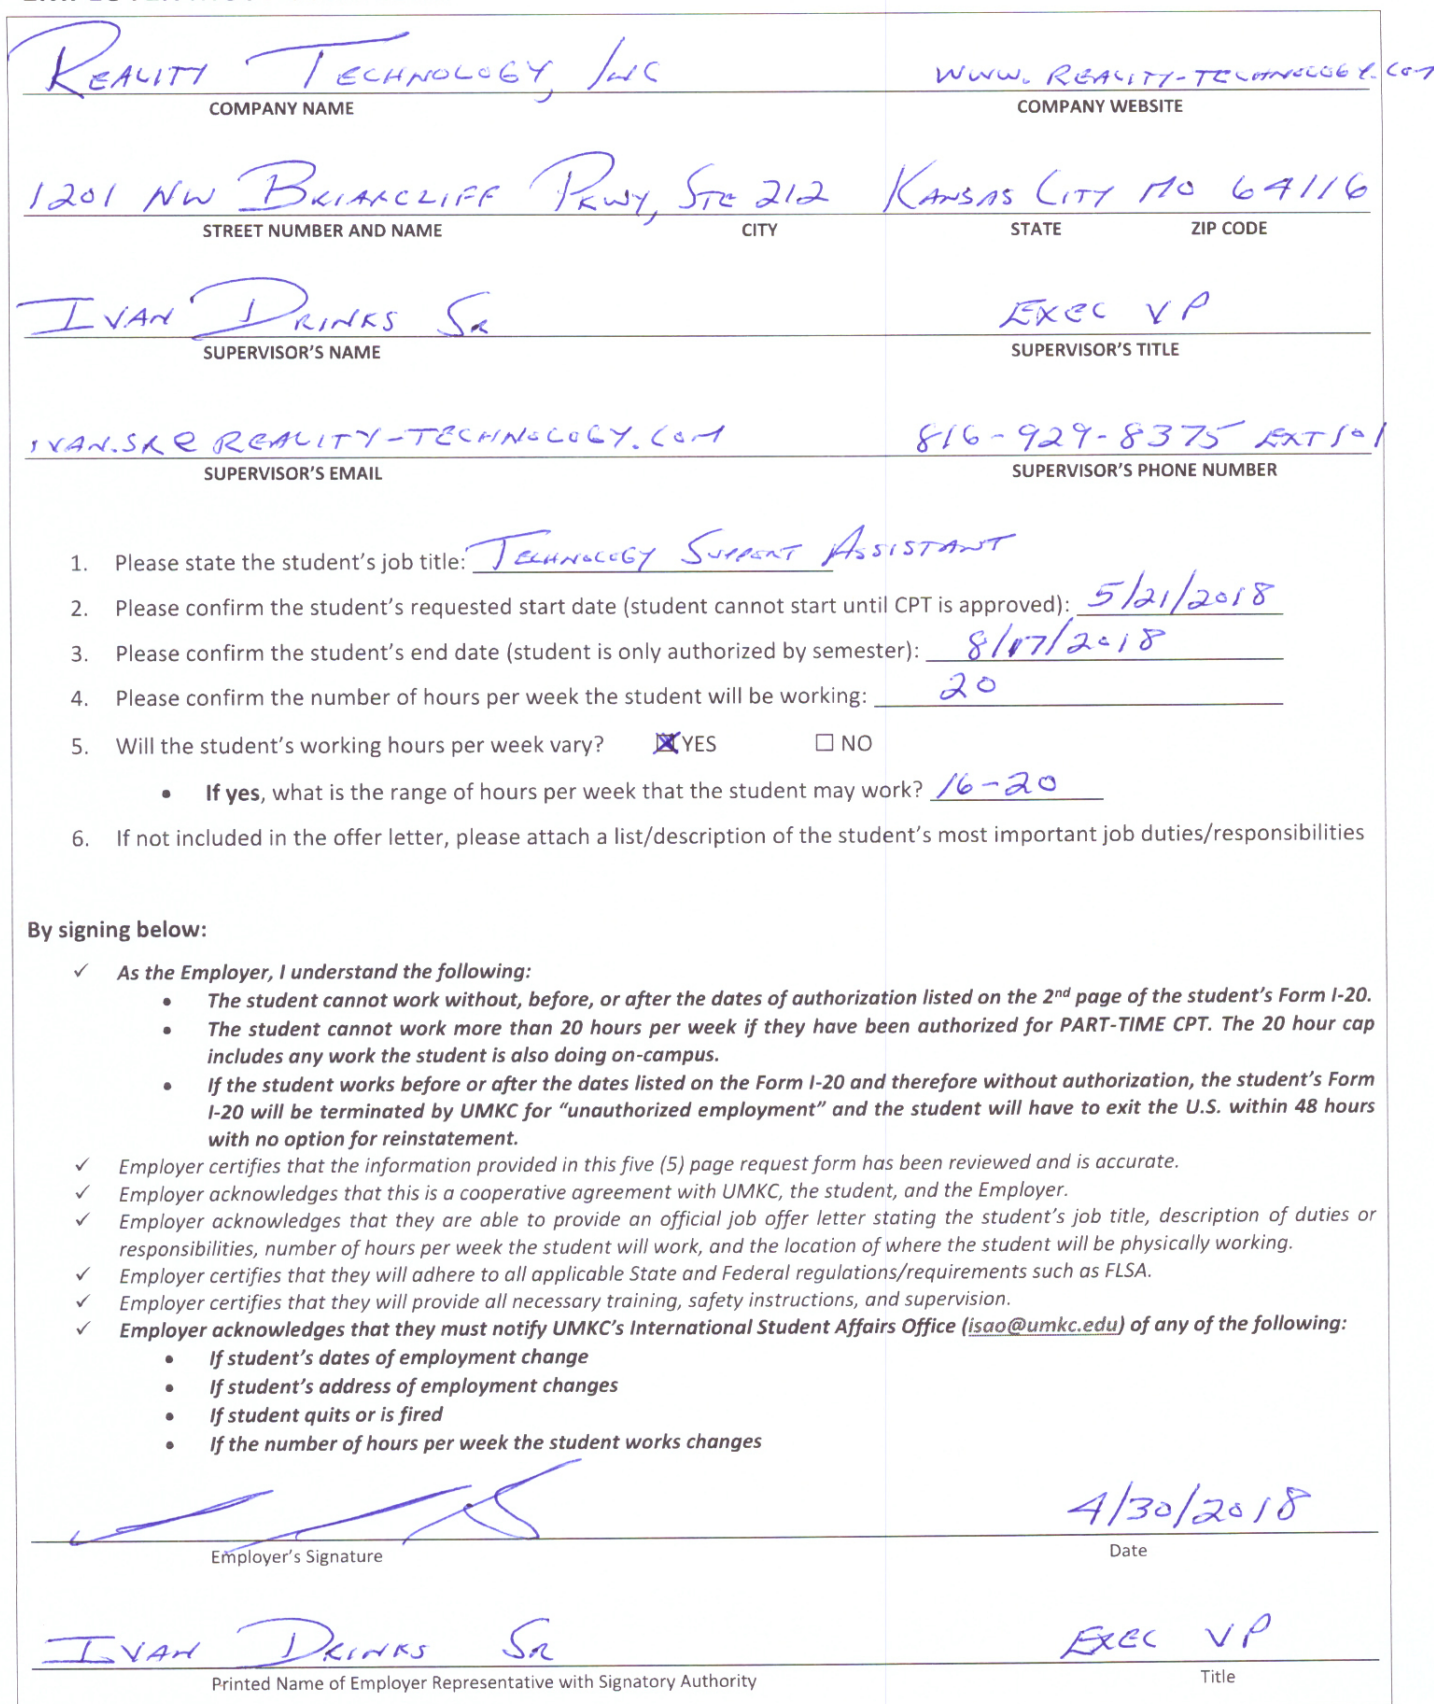 REALITY TECHNOLOGY, INC WWW.REALITY-TECHNOLOGY.COM
COMPANY NAME COMPANY WEBSITE
1201 NW BRIARCLIFF PKWY, STE 212 KANSAS CITY MO 64116
STREET NUMBER AND NAME CITY STATE ZIP CODE
IVAN DRINKS SR EXEC VP
SUPERVISOR'S NAME SUPERVISOR'S TITLE
IVAN.SR@REALITY-TECHNOLOGY.COM 816-929-8375 EXT 101
SUPERVISOR'S EMAIL SUPERVISOR'S PHONE NUMBER
1. Please state the student's job title: TECHNOLOGY SUPPORT ASSISTANT
2. Please confirm the student's requested start date (student cannot start until CPT is approved): 5/21/2018
3. Please confirm the student's end date (student is only authorized by semester): 8/17/2018
4. Please confirm the number of hours per week the student will be working: 20
5. Will the student's working hours per week vary? ☒ YES ☐ NO
• If yes, what is the range of hours per week that the student may work? 16-20
6. If not included in the offer letter, please attach a list/description of the student's most important job duties/responsibilities
By signing below:
✓ As the Employer, I understand the following:
• The student cannot work without, before, or after the dates of authorization listed on the 2nd page of the student's Form I-20.
• The student cannot work more than 20 hours per week if they have been authorized for PART-TIME CPT. The 20 hour cap
includes any work the student is also doing on-campus.
• If the student works before or after the dates listed on the Form I-20 and therefore without authorization, the student's Form
I-20 will be terminated by UMKC for "unauthorized employment" and the student will have to exit the U.S. within 48 hours
with no option for reinstatement.
✓ Employer certifies that the information provided in this five (5) page request form has been reviewed and is accurate.
✓ Employer acknowledges that this is a cooperative agreement with UMKC, the student, and the Employer.
✓ Employer acknowledges that they are able to provide an official job offer letter stating the student's job title, description of duties or
responsibilities, number of hours per week the student will work, and the location of where the student will be physically working.
✓ Employer certifies that they will adhere to all applicable State and Federal regulations/requirements such as FLSA.
✓ Employer certifies that they will provide all necessary training, safety instructions, and supervision.
✓ Employer acknowledges that they must notify UMKC's International Student Affairs Office (isao@umkc.edu) of any of the following:
• If student's dates of employment change
• If student's address of employment changes
• If student quits or is fired
• If the number of hours per week the student works changes
4/30/2018
Employer's Signature Date
IVAN DRINKS SR EXEC VP
Printed Name of Employer Representative with Signatory Authority Title